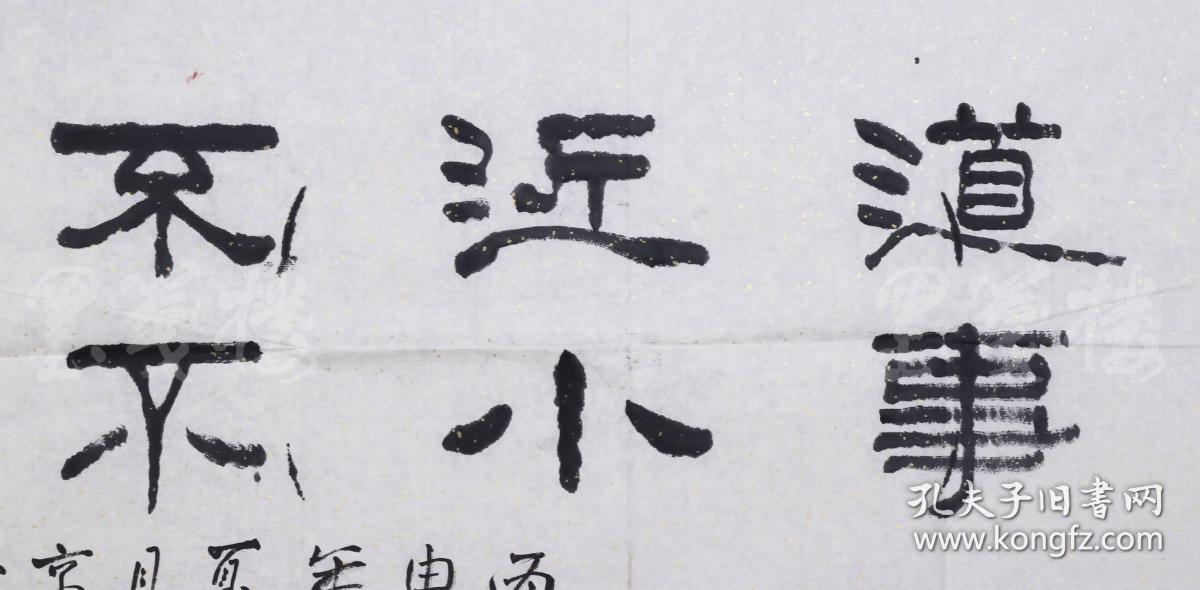 道近不
事小不
丙申年夏月京
孔夫子旧書网
www.kongfz.com